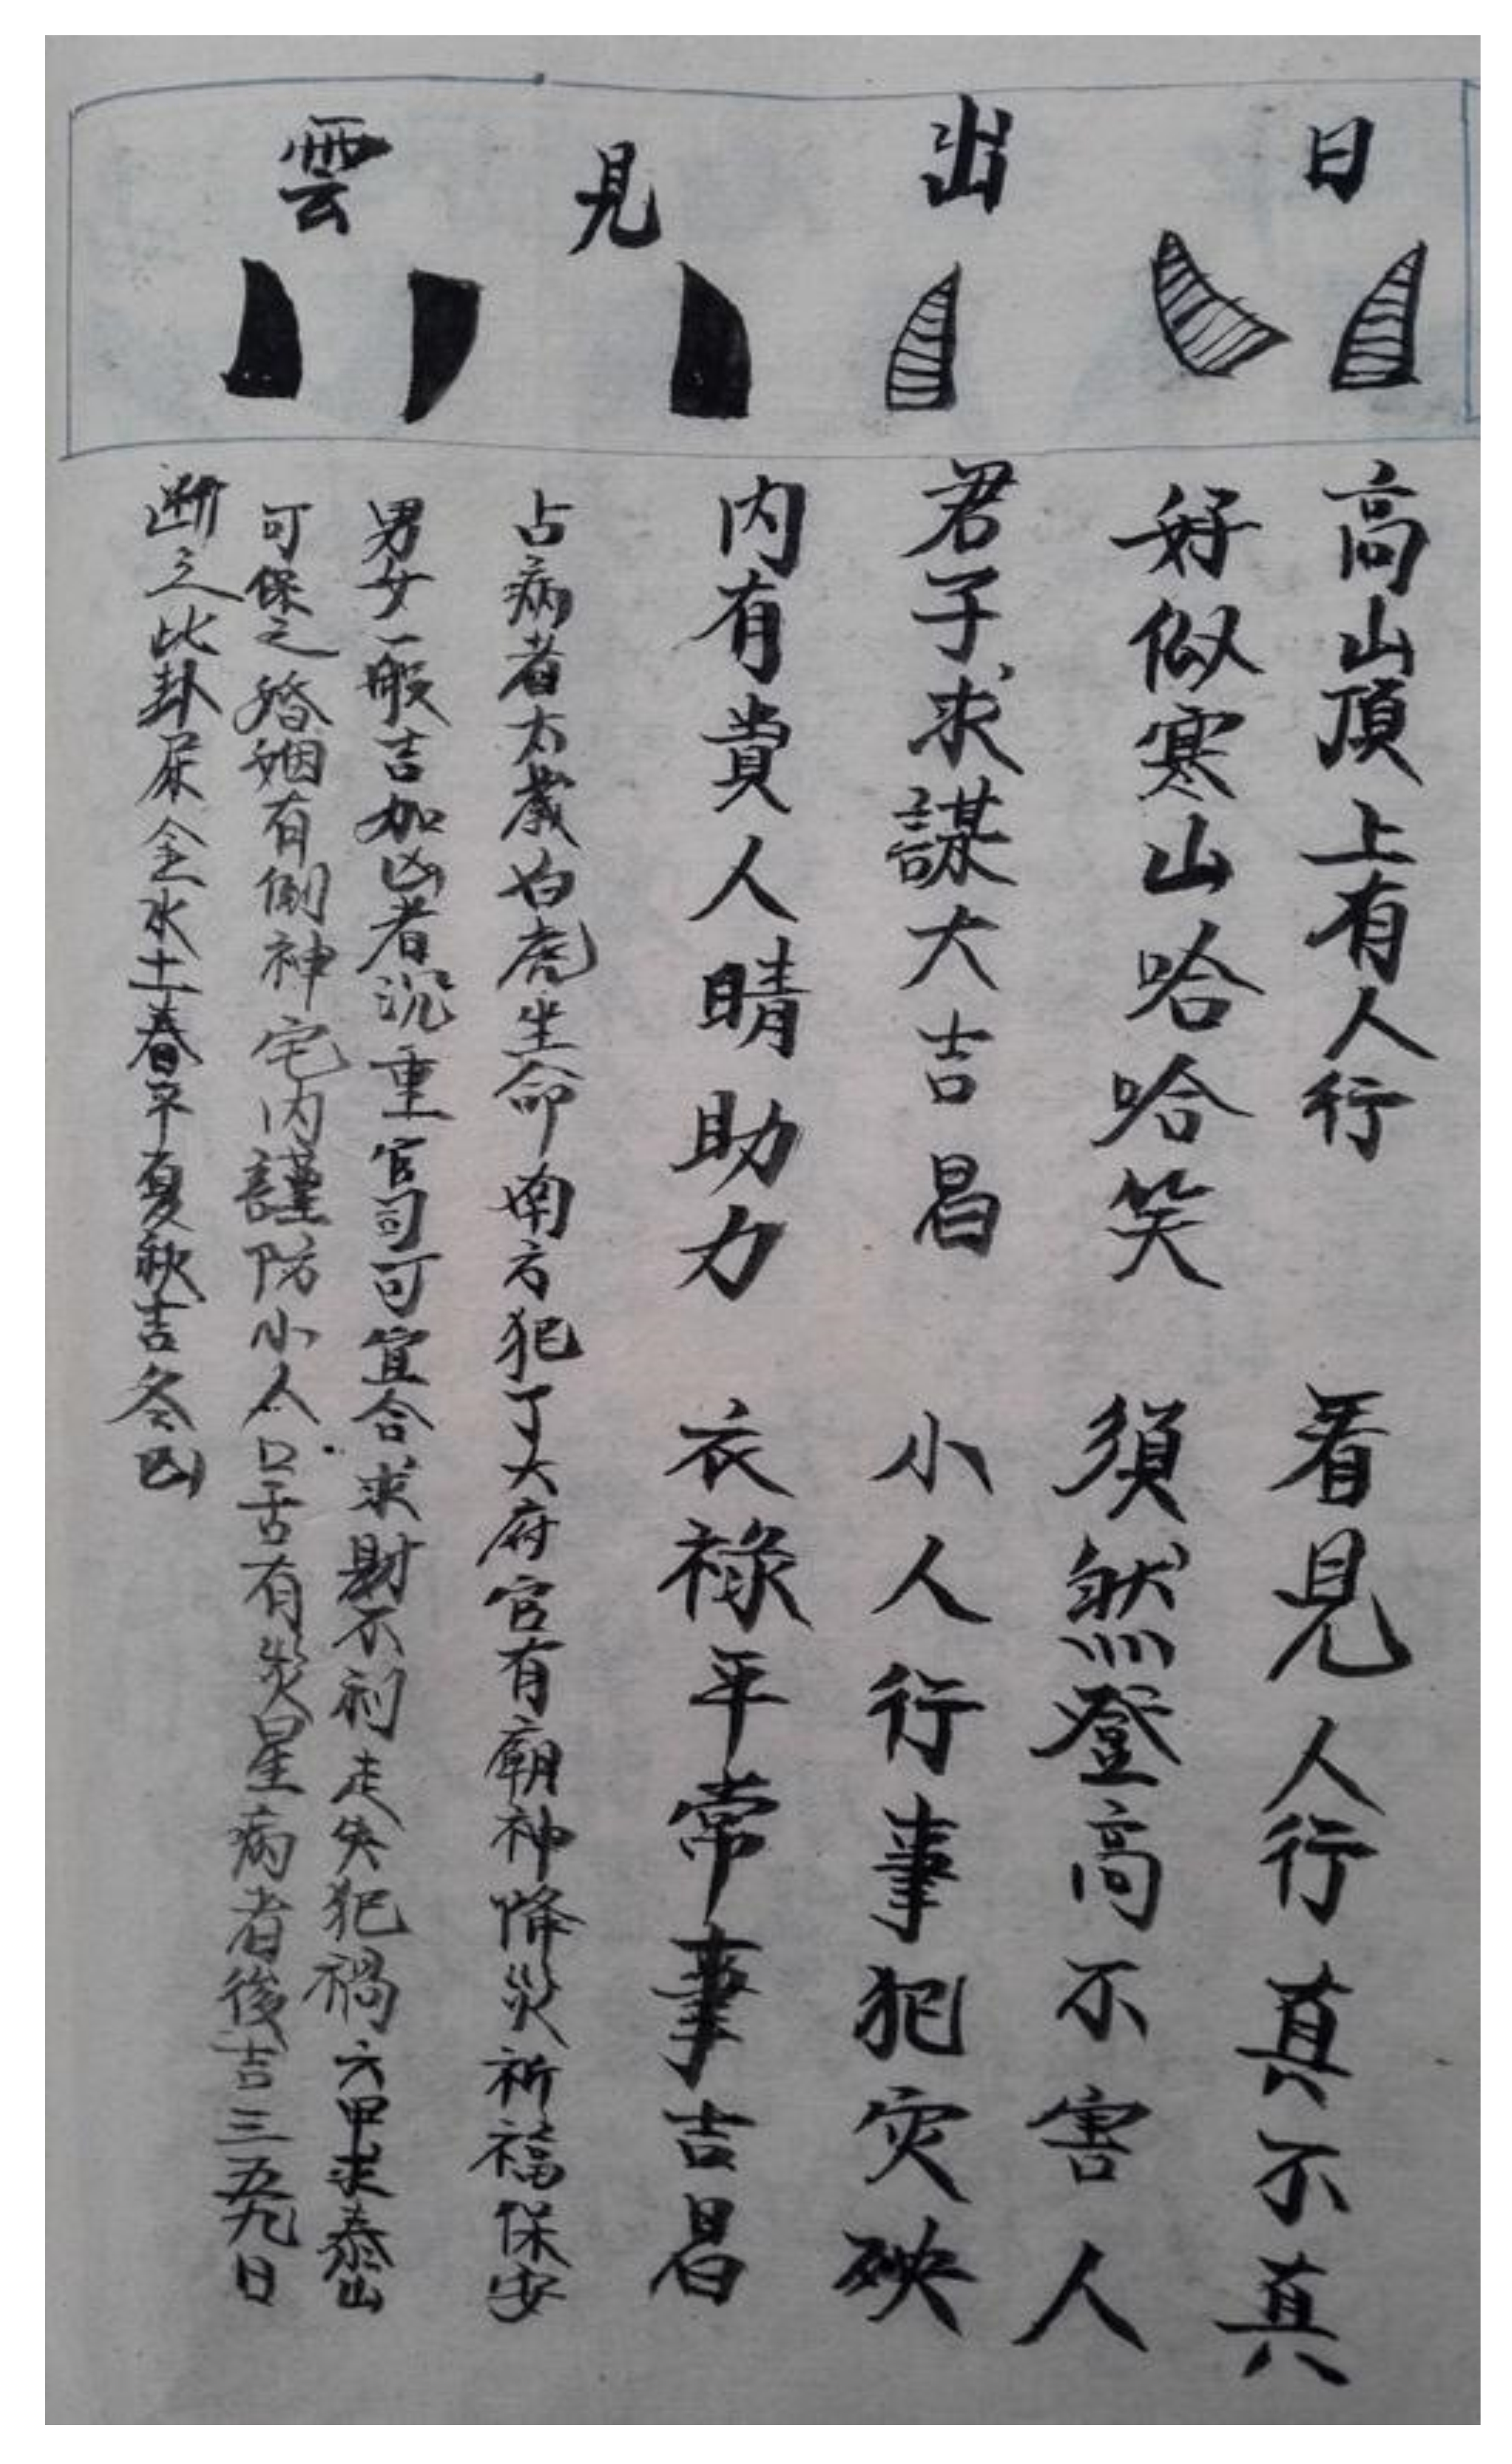 日出見雲
高山頂上有人行 看見人行真不真
好似寒山哈哈笑 須然登高不害人
君子求謀大吉昌 小人行事犯灾殃
内有貴人晴助力 衣祿平常事吉昌
占病者太歲白虎坐命南方犯了大府官有廟神降災祈福保安
男女一般吉加凶者沉重官司可宜合求財不利走失犯禍六甲求泰山
可保之婚姻有倒神宅内謹防小人口舌有災星病者後吉三五九日
断之此卦屎金水土春平夏秋吉冬凶